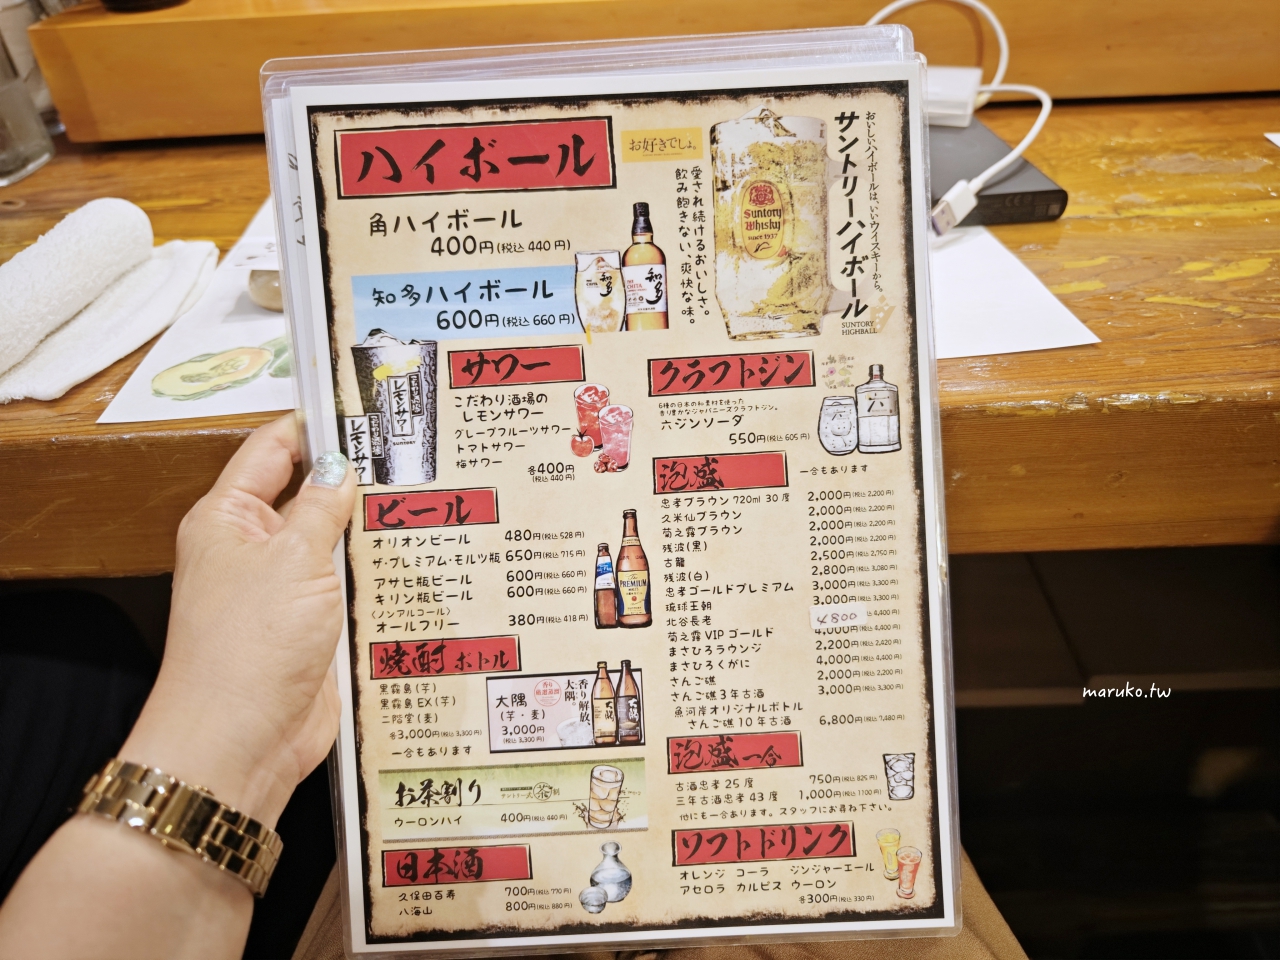 ハイボール
お好きでしょ。
角ハイボール
400円(税込 440 円)
知多ハイボール
600円(税込 660 円)
知多
知多
愛され続けるおいしさ。
飲み飽きない、爽快な味。
Suntory
Whisky
since 1937
おいしいハイボールは、いいウイスキーから。
サントリーハイボール
SUNTORY
HIGHBALL
サワー
こだわり酒場の
レモンサワー
グレープフルーツサワー
トマトサワー
梅サワー
各400円
(税込 440 円)
レモンサワー
レモンサワー
SUNTORY
クラフトジン
6種の日本の和素材を使った
香り豊かなジャパニーズクラフトジン。
六ジンソーダ
550円(税込 605 円)
六
ビール
オリオンビール 480円(税込 528 円)
ザ・プレミアム・モルツ瓶 650円(税込 715 円)
アサヒ瓶ビール 600円(税込 660 円)
キリン瓶ビール 600円(税込 660 円)
〈ノンアルコール〉
オールフリー 380円(税込 418 円)
PREMIUM
焼酎 ボトル
黒霧島(芋)
黒霧島 EX(芋)
二階堂(麦)
各3,000円(税込 3,300 円)
一合もあります
大隅
(芋・麦)
3,000円
(税込 3,300 円)
香り解放、
大隅。
大隅
大隅
お茶割り
茶
ウーロンハイ 400円(税込 440 円)
日本酒
久保田百寿 700円(税込 770 円)
八海山 800円(税込 880 円)
泡盛
一合もあります
忠孝ブラウン 720ml 30 度 2,000円(税込 2,200 円)
久米仙ブラウン 2,000円(税込 2,200 円)
菊之露ブラウン 2,000円(税込 2,200 円)
残波(黒) 2,000円(税込 2,200 円)
古龍 2,500円(税込 2,750 円)
残波(白) 2,800円(税込 3,080 円)
忠孝ゴールドプレミアム 3,000円(税込 3,300 円)
琉球王朝 3,000円(税込 3,300 円)
北谷長老 4800 税込 4,400 円)
菊之露 VIP ゴールド 4,000円(税込 4,400 円)
まさひろラウンジ 2,200円(税込 2,420 円)
まさひろくがに 4,000円(税込 4,400 円)
さんご礁 2,000円(税込 2,200 円)
さんご礁 3 年古酒 3,000円(税込 3,300 円)
魚河岸オリジナルボトル
さんご礁 10 年古酒 6,800円(税込 7,480 円)
泡盛 一合
古酒忠孝 25 度 750円(税込 825 円)
三年古酒忠孝 43 度 1,000円(税込 1100 円)
他にも一合あります。スタッフにお尋ね下さい。
ソフトドリンク
オレンジ コーラ ジンジャーエール
アセロラ カルピス ウーロン
各300円(税込 330 円)
maruko.tw